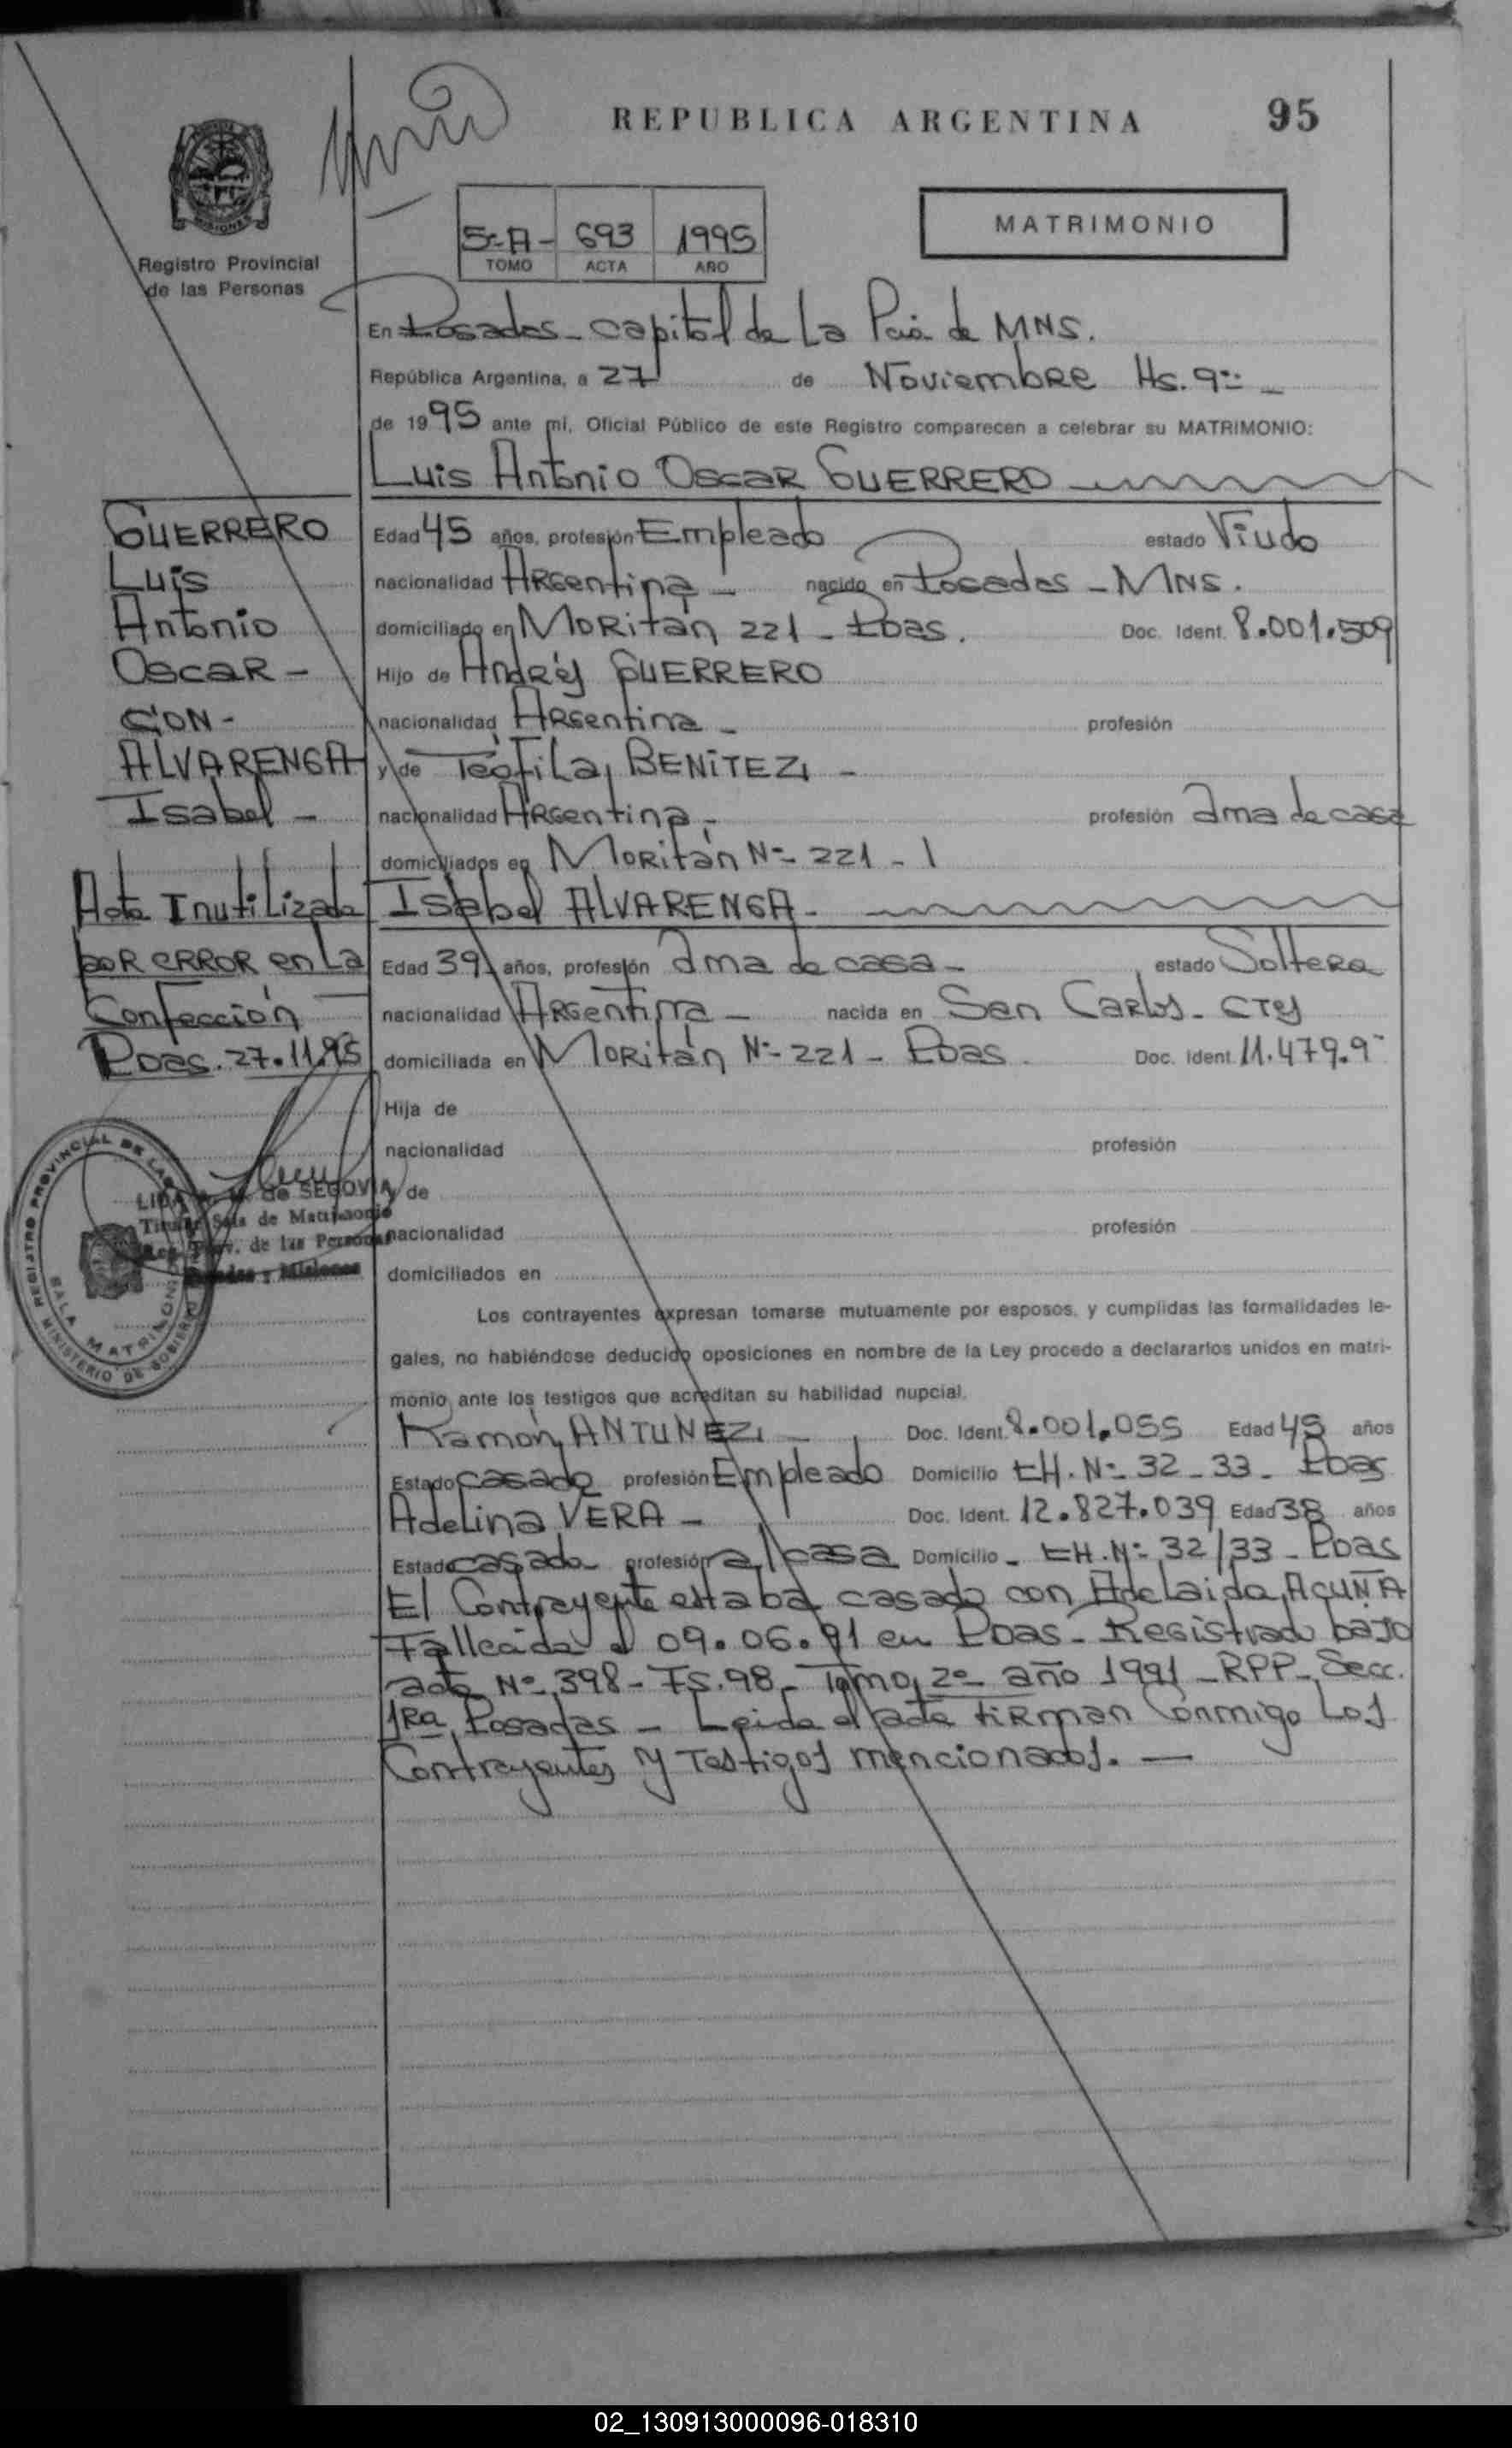 REPUBLICA ARGENTINA
95
MATRIMONIO
5º-A- 693 1995
TOMO ACTA AÑO
MISIONES
Registro Provincial
de las Personas
En Posadas - capital de La Pcia de MNS.
República Argentina, a 27 de Noviembre Hs. 9
de 1995 ante mí, Oficial Público de este Registro comparecen a celebrar su MATRIMONIO:
Luis Antonio Oscar GUERRERO
GUERRERO
Luis
Antonio
Oscar -
CON -
ALVARENGA
Isabel -
Edad 45 años, profesión Empleado estado Viudo
nacionalidad Argentina - nacido en Posadas - MNS.
domiciliado en Moritán 221 - Pdas. Doc. Ident. 8.001.509
Hijo de Andrés GUERRERO
nacionalidad Argentina - profesión
y de Teófila BENITEZ -
nacionalidad Argentina - profesión ama de casa
domiciliados en Moritán Nº 221 -
Isabel ALVARENGA -
Acta Inutilizada
por error en La
Confección
Pdas. 27.11.95
Edad 39 años, profesión ama de casa - estado Soltera
nacionalidad Argentina - nacida en San Carlos - CTES
domiciliada en Moritán Nº 221 - Pdas. Doc. Ident. 11.479.9
Hija de
nacionalidad profesión
y de
nacionalidad profesión
domiciliados en
REGISTRO PROVINCIAL DE LAS
SALA MATRIMONIO
MINISTERIO DE GOBIERNO
de SEGOVIA
Titular Sala de Matrimonio
Reg. Prov. de las Personas
Posadas - Misiones
Los contrayentes expresan tomarse mutuamente por esposos, y cumplidas las formalidades le-
gales, no habiéndose deducido oposiciones en nombre de la Ley procedo a declararlos unidos en matri-
monio ante los testigos que acreditan su habilidad nupcial.
Ramón ANTUNEZ - Doc. Ident. 8.001.055 Edad 45 años
Estado casado profesión Empleado Domicilio CH. Nº 32-33 - Pdas
Adelina VERA - Doc. Ident. 12.827.039 Edad 38 años
Estado casada profesión a/casa Domicilio - CH. Nº 32/33 - Pdas
El Contrayente estaba casado con Adelaida ACUÑA
Fallecida el 09.06.91 en Pdas - Registrado bajo
acta Nº 398 - Fs. 98 - Tomo 2º año 1991 - RPP - Secc.
1Ra Posadas - Leida el acta firman Conmigo Los
Contrayentes y Testigos mencionados. -
02_130913000096-018310